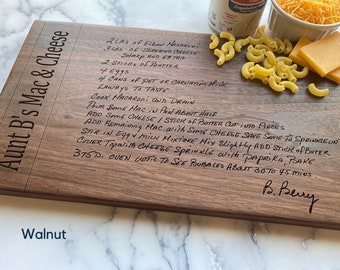 Aunt B's Mac & Cheese
2 LBS of Elbow Macaroni
3 LBS of Shredding Cheese
Sharp and Extra
2 Sticks of Butter
4 Eggs
4 Cans of Pet or Carnation Milk
Lawrys to Taste
Cook Macaroni and Drain
Pour Some Mac in Pan About Half
Add Some Cheese 1 Stick of Butter Cut into Pieces
Add Remaining Mac with Some Cheese Save Some to Sprinkle on
Stir in Egg & Milk Mixture Mix Slightly Add Stick of Butter
Cover Top with Cheese Sprinkle with Paprika Bake
375D. oven until to See Bubbles About 30 to 45 mins
B. Berry
Walnut